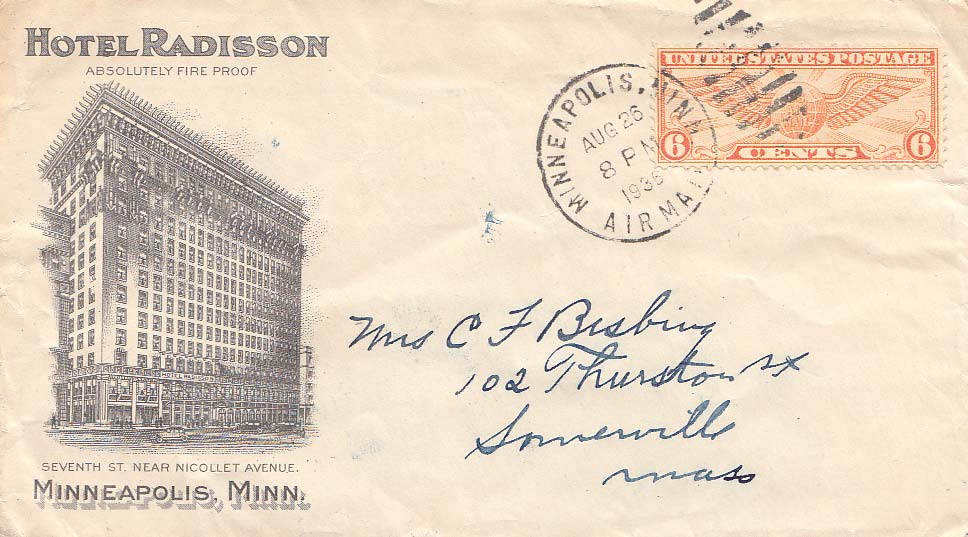 HOTEL RADISSON
ABSOLUTELY FIRE PROOF
HOTEL RADISSON
SEVENTH ST. NEAR NICOLLET AVENUE.
MINNEAPOLIS, MINN.
MINNEAPOLIS, MINN.
AUG 26
8 PM
1936
AIR MAIL
UNITED STATES POSTAGE
6 CENTS 6
Mrs C F Besbing
102 Thurston St
Somerville
Mass